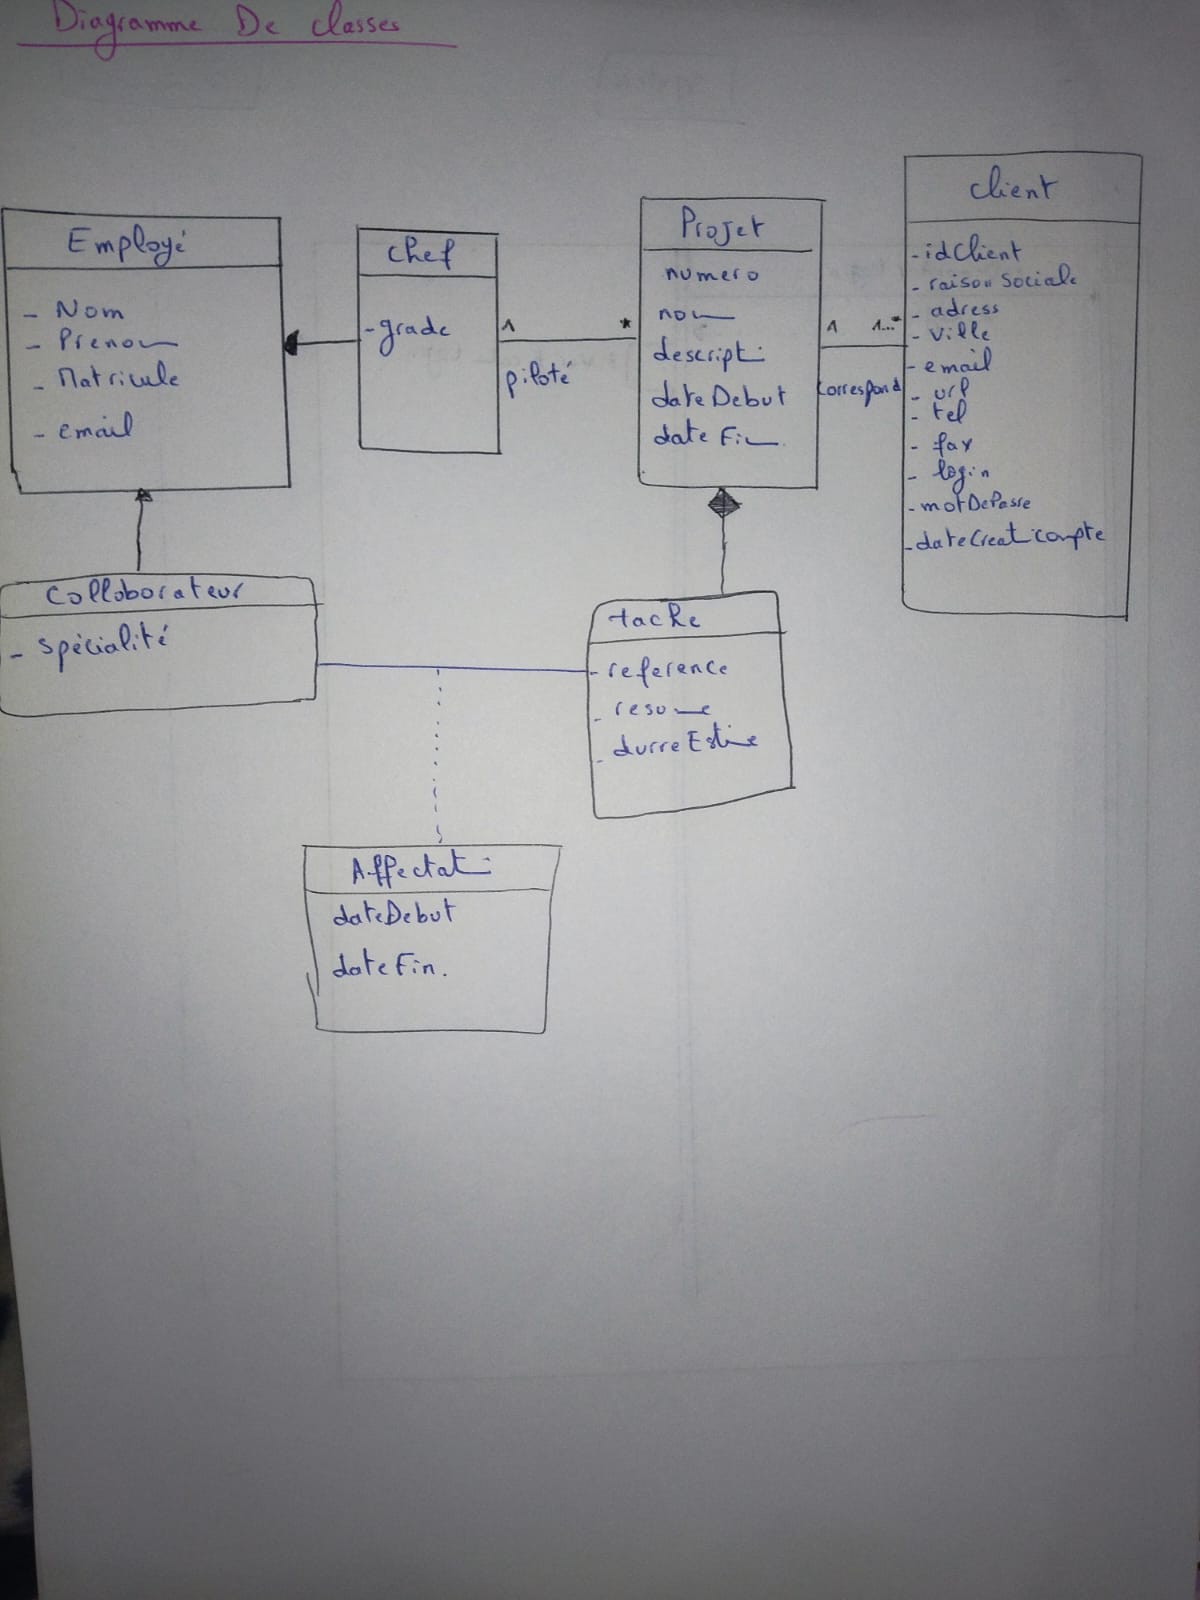 Diagramme De classes
Employé
- Nom
- Prenom
- Matricule
- email
chef
- grade
1 *
piloté
Projet
numero
nom
descripti
dateDebut
date Fin
1 1...*
correspond
client
- idClient
- raison Sociale
- adress
- ville
- email
- url
- tel
- fax
- login
- motDePasse
- dateCreaticompte
Colloborateur
- spécialité
tache
- reference
- resume
- durreEstime
Affectati
dateDebut
dateFin.